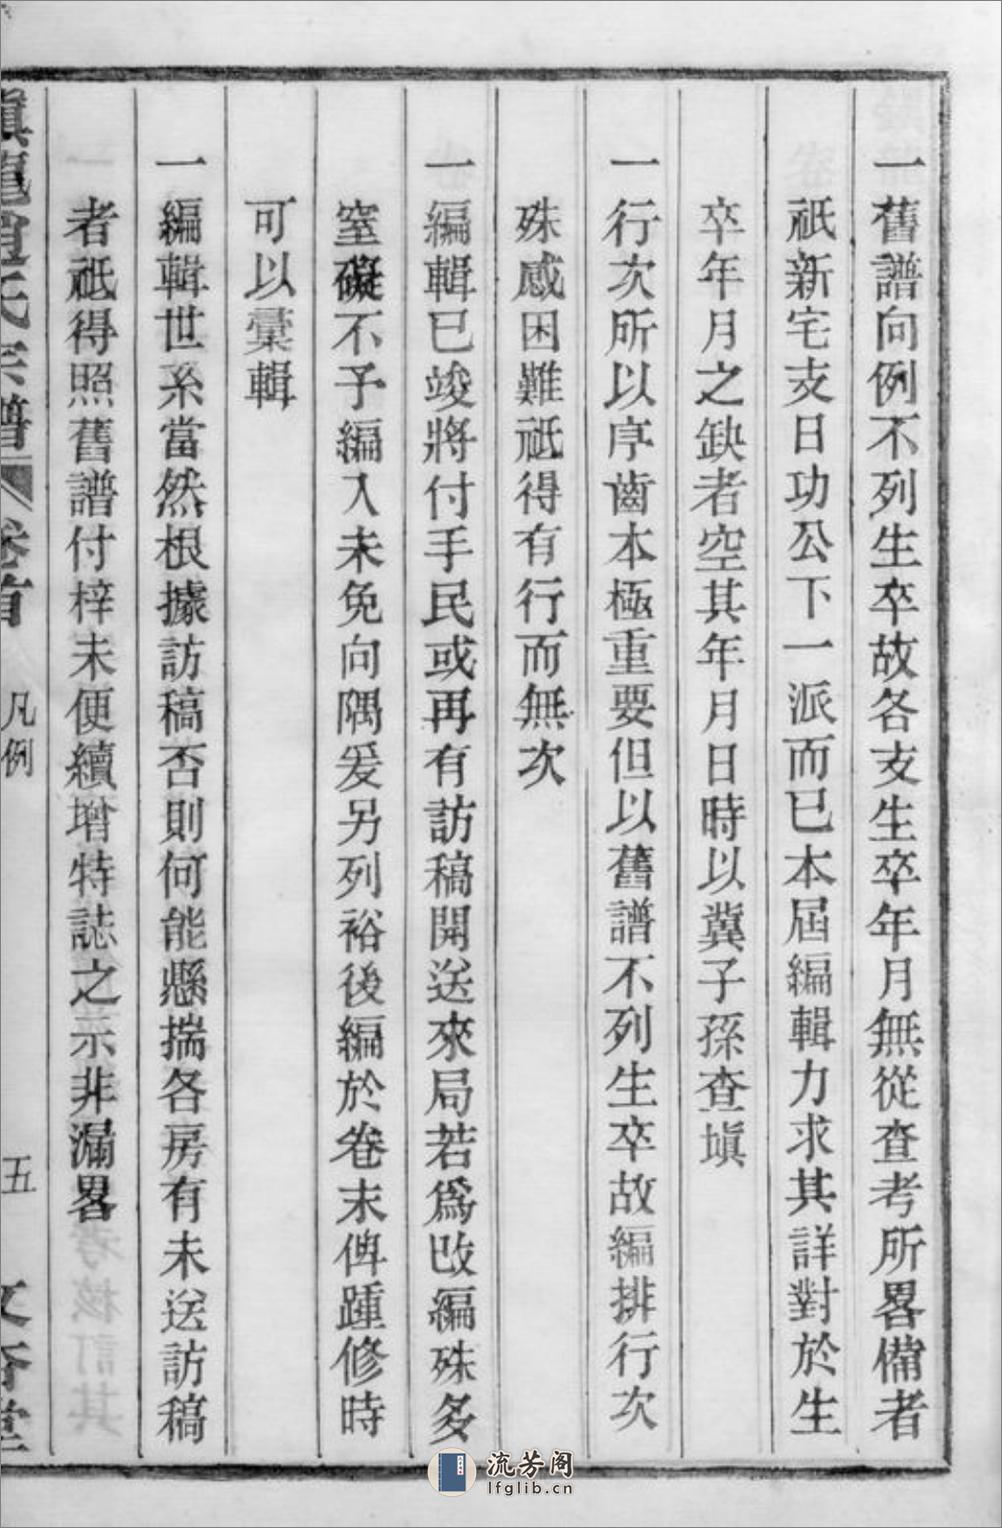 一舊譜向例不列生卒故各支生卒年月無從查考所畧備者
祇新宅支日功公下一派而已本屆編輯力求其詳對於生
卒年月之缺者空其年月日時以冀子孫查塡
一行次所以序齒本極重要但以舊譜不列生卒故編排行次
殊感困難祇得有行而無次
一編輯已竣將付手民或再有訪稿開送來局若爲改編殊多
窒礙不予編入未免向隅爰另列裕後編於卷末俾踵修時
可以彙輯
一編輯世系當然根據訪稿否則何能懸揣各房有未送訪稿
者祇得照舊譜付梓未便續增特誌之示非漏畧
氏宗譜 卷首 凡例 五
流芳阁
lfglib.cn